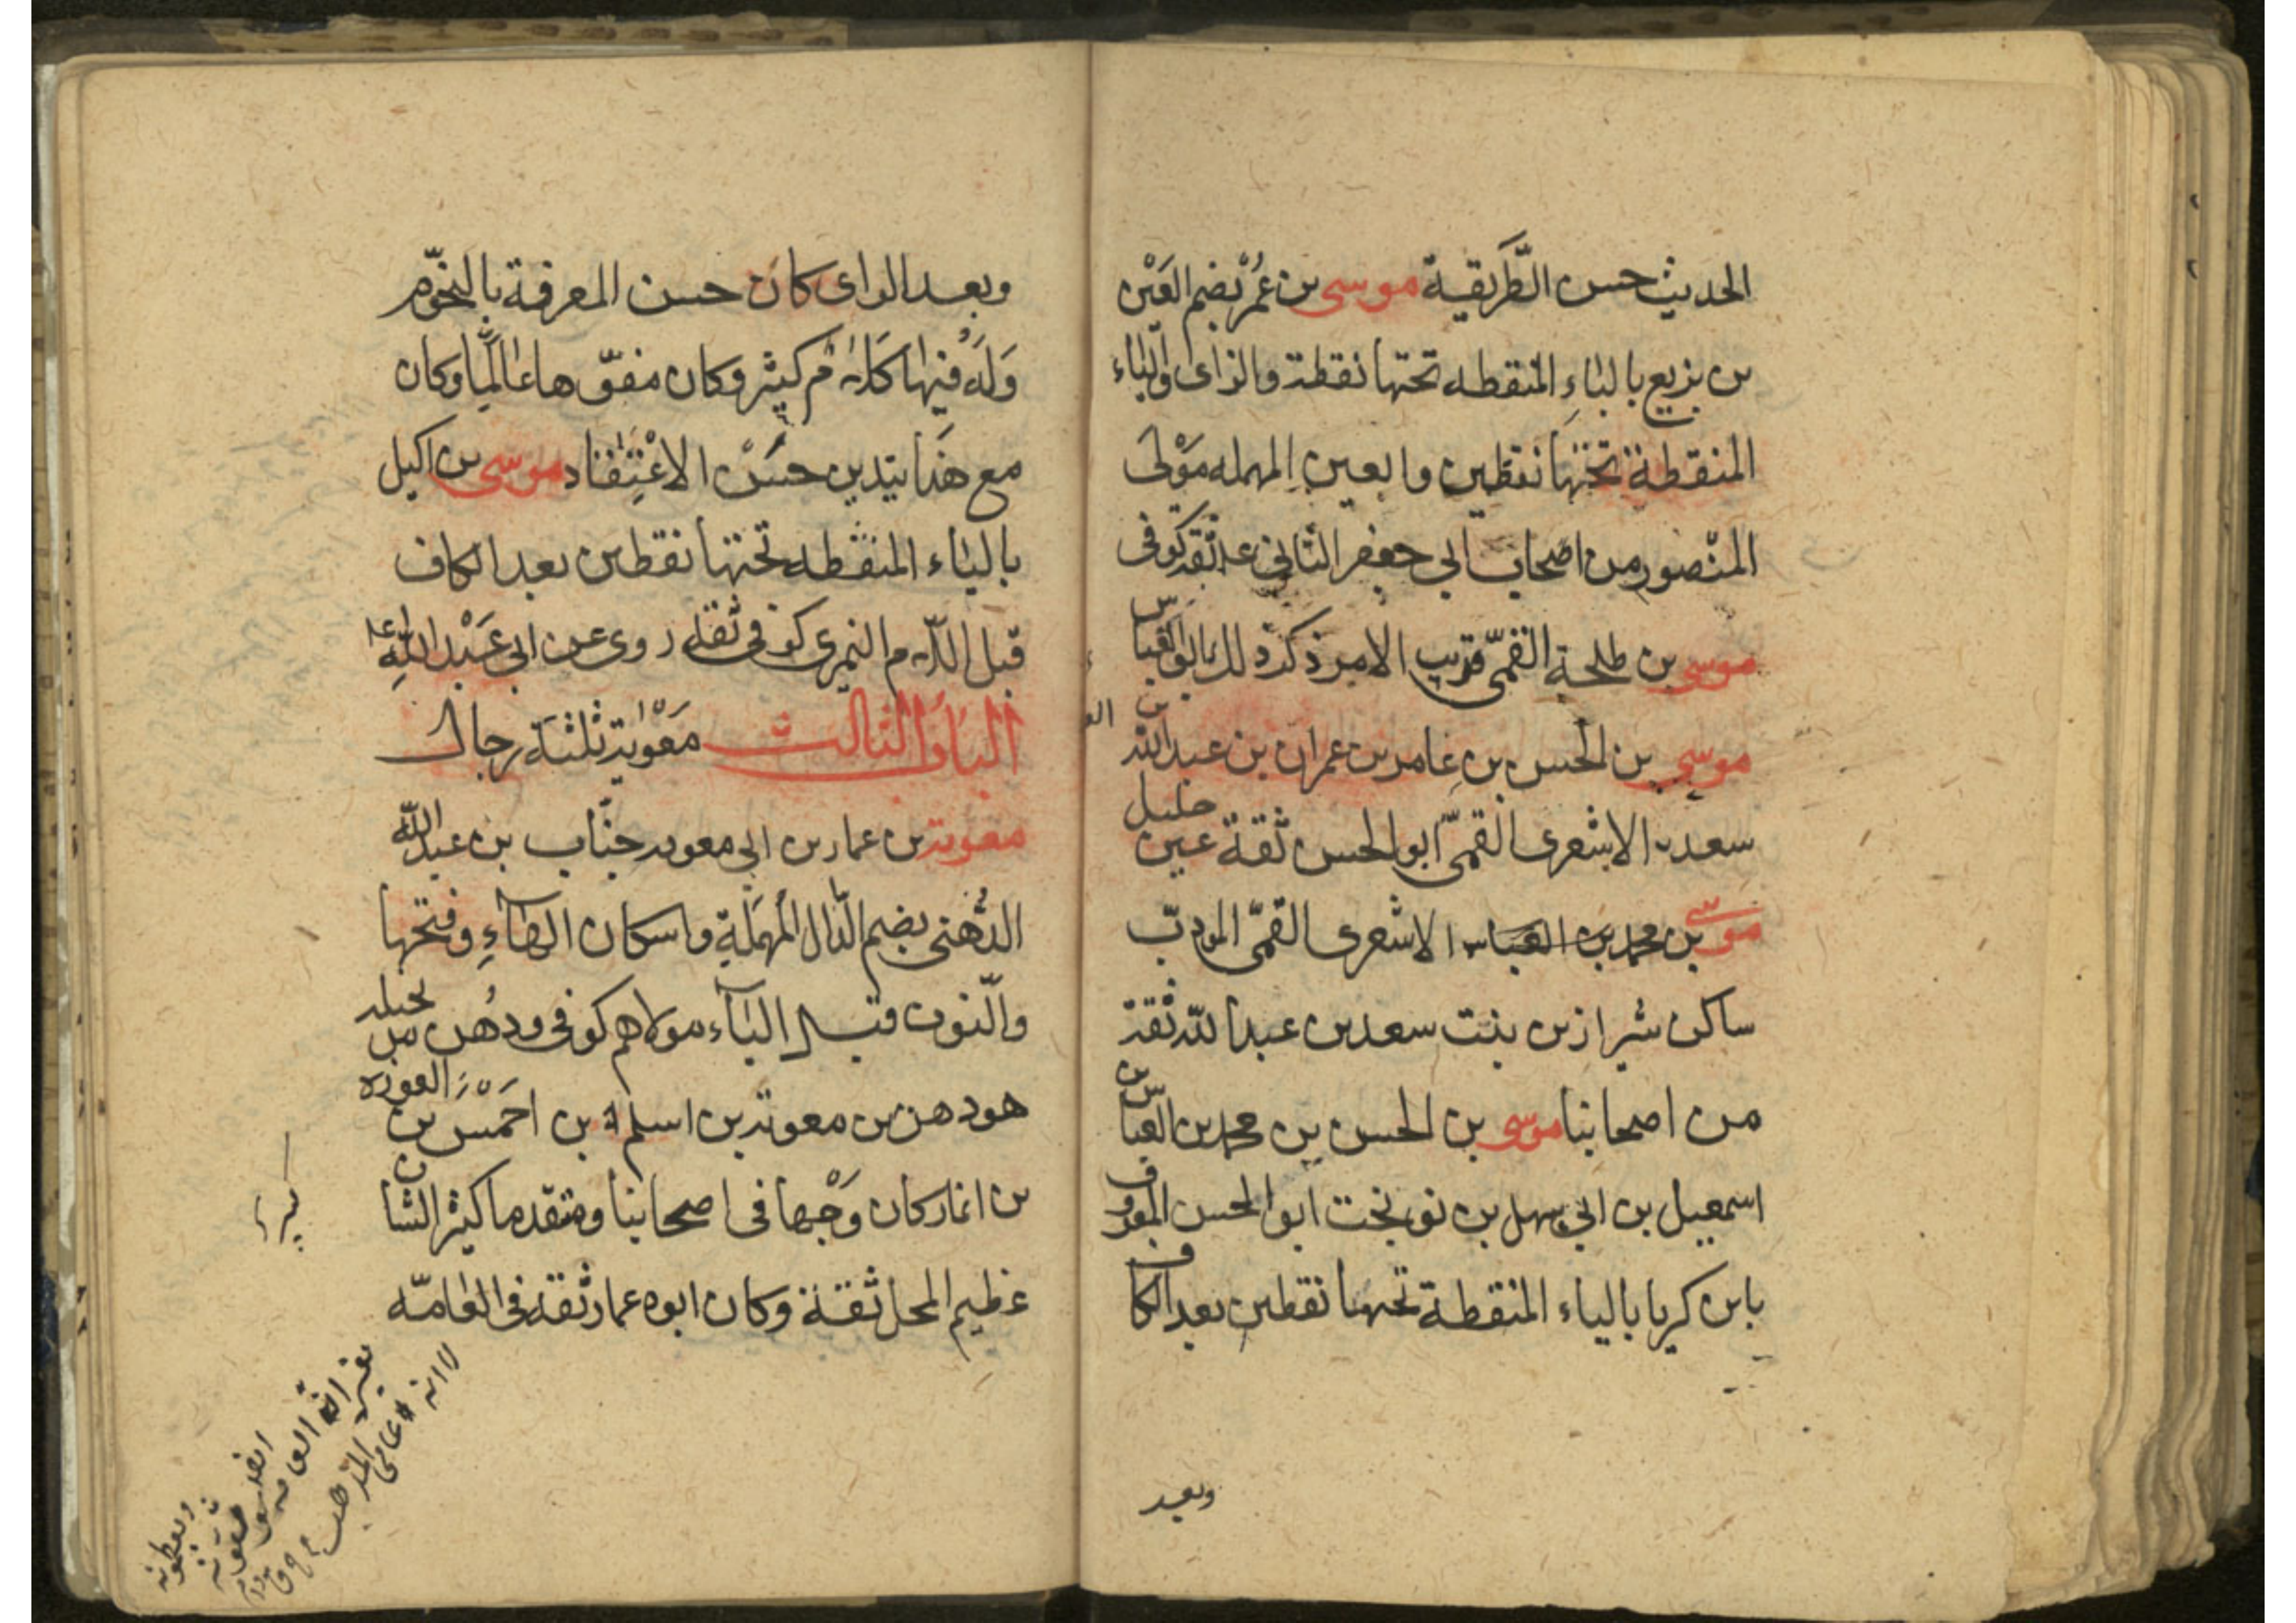 الحديث حسن الطَّريقية موسى بن عُمَر بضم العَيْن
بن بزيع بالبَاءِ المنقطه تحتها نقطة والزاى والياء
المنقطة تحتها نقطين والعين المهمله مَوْلى
المنصور من اصحاب ابي جعفر الثاني ع ثقة كوفى
موسى بن طلحة القمّى قريب الامر ذكر ذلك ابو العباس
موسى بن الحسن بن عامر بن عمران بن عبد الله بن
سعد الاشعرى القمىّ ابو الحسن ثقة عين جليل
موسى بن محمد بن العباس الاشعرى القمّى المودبّ
ساكن شيراز بن بنت سعد بن عبد الله ثقة
من اصحابنا موسى بن الحسن بن محمد بن العباس بن
اسمعيل بن ابي سهل بن نوبخت ابو الحسن المعروف
بابن كريا بالياء المنقطة تحتها نقطين بعد الكاف
وبعد
وبعد الراى كان حسن المعرفة بالنجوّم
وَلَهُ فيها كلام كثير وكان مفوّها عالما وكان
مع هذا يتدين حسَنْ الاعْتِقٰاد موسى بن اكيل
بالياء المنقطه تحتها نقطين بعد الكاف
قبل اللام النميرى كوفى ثقة روى عن ابى عَبْد اللهِ ع
البَابُ الثالث مَعْويَة ثلثة رجال
معوية بن عمار بن ابي معويه خبّاب بن عبد الله
الدُهنى بضم الدّال المُهمَلَة واسكان الهآءِ وفتحها
والنّون قبل اليآء مولاهم كوفى ودُهن من بجيله
هو دهن بن معوية بن اسلم بن احَمْسَ بن الغوره
بن انمار كان وَجْهًا فى اصحابنا ومتقدما كثير الشان
عظيم المحل ثقة وكان ابوه عمار ثقة فى العٰامّه
كبير
لا انه عامى
المذهب